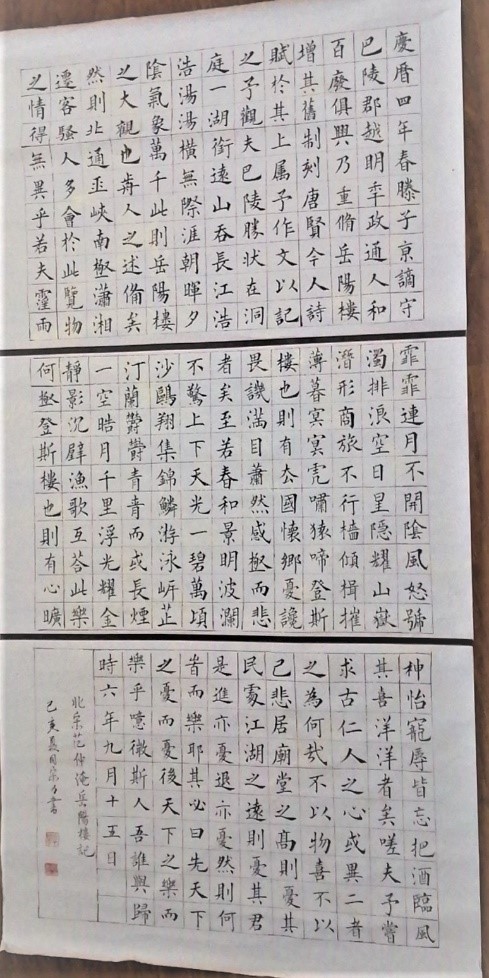 慶曆四年春滕子京謫守
巴陵郡越明年政通人和
百廢俱興乃重脩岳陽樓
增其舊制刻唐賢今人詩
賦於其上属予作文以記
之予觀夫巴陵勝狀在洞
庭一湖銜遠山吞長江浩
浩湯湯橫無際涯朝暉夕
陰氣象萬千此則岳陽樓
之大觀也前人之述備矣
然則北通巫峽南極瀟湘
遷客騷人多會於此覽物
之情得無異乎若夫霪雨
霏霏連月不開陰風怒號
濁排浪空日星隱耀山嶽
潛形商旅不行檣傾楫摧
薄暮冥冥虎嘯猿啼登斯
樓也則有去國懷鄉憂讒
畏譏滿目蕭然感極而悲
者矣至若春和景明波瀾
不驚上下天光一碧萬頃
沙鷗翔集錦鱗游泳岸芷
汀蘭鬱鬱青青而或長煙
一空皓月千里浮光耀金
靜影沉璧漁歌互荅此樂
何極登斯樓也則有心曠
神怡寵辱皆忘把酒臨風
其喜洋洋者矣嗟夫予嘗
求古仁人之心或異二者
之為何哉不以物喜不以
己悲居廟堂之高則憂其
民處江湖之遠則憂其君
是進亦憂退亦憂然則何
旹而樂耶其必曰先天下
之憂而憂後天下之樂而
樂乎噫微斯人吾誰與歸
時六年九月十五日
北宋范仲淹岳陽樓記
己亥夏書